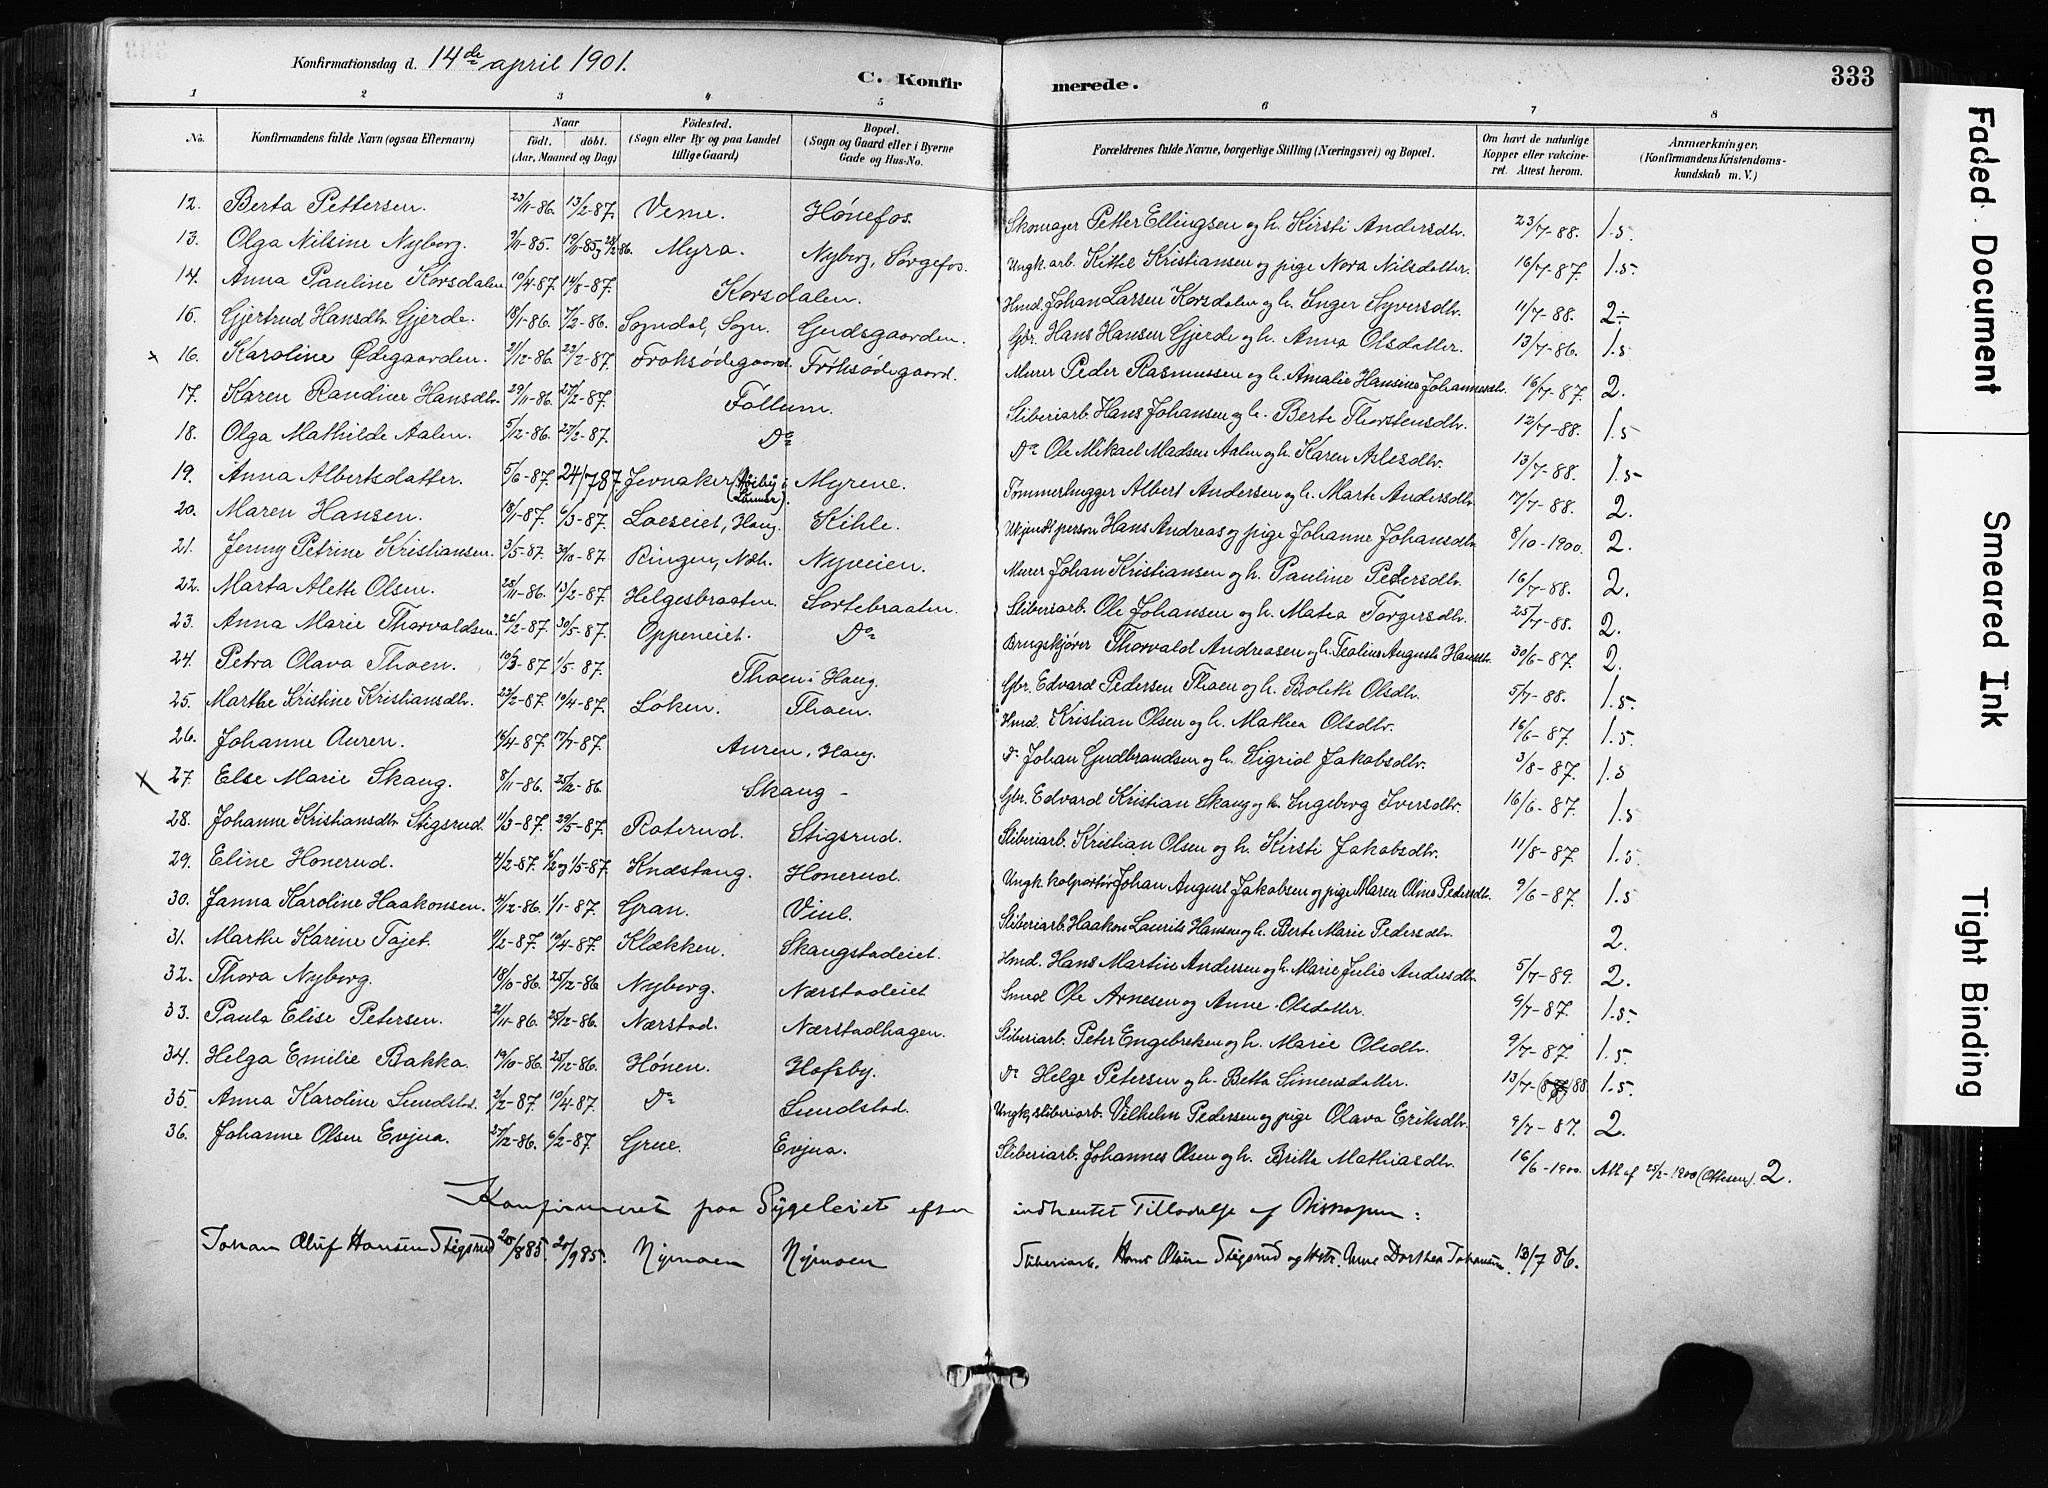 Konfirmationsdag d. 14de april 1901.
C. Konfirmerede.
333
1 2 3 4 5 6 7 8
No. Konfirmandens fulde Navn (ogsaa Efternavn) Naar født. døbt. (Aar, Maaned og Dag) Fødested. (Sogn eller By og paa Landet tillige Gaard) Bopæl. (Sogn og Gaard eller i Byerne Gade og Hus-No. Forældrenes fulde Navne, borgerlige Stilling (Næringsvei) og Bopæl. Om havt de naturlige Kopper eller vakcineret. Attest herom. Anmærkninger. (Konfirmandens Kristendomskundskab m. V.)
12. Berta Pettersen. 23/11-86. 13/2-87. Veme. Hønefos. Skomager Petter Ellingsen og h. Kirsti Andersdtr. 23/7-88. 1.5.
13. Olga Nilsine Nyborg. 2/11-85. Myra. Nyborg, Sørgefos. Ungk. arb. Kittel Kristiansen og pige Nora Nilsdatter. 16/7-87. 1.5.
14. Anna Pauline Korsdalen 10/4-87 14/8-87. Korsdalen. Hmd. Johan Larsen Korsdalen og h. Inger Syversdtr. 11/7-88. 2÷
15. Gjertrud Hansdtr. Gjerde. 18/1-86. 7/2-86. Sogndal, Sogn. Gudsgaarden. Gbr. Hans Hansen Gjerde og h. Anna Olsdatter. 13/7-86. 1.5
x 16. Karoline Ødegaarden. 21/12-86. 23/2-87. Frøksødegaard. Frøksødegaard. Murer Peder Rasmussen og h. Amalie Hansine Johannesdtr. 16/7-87. 2.
17. Karen Randine Hansdtr. 29/11-86. 27/2-87. Follum. Sliberiarb. Hans Johansen og h. Berte Thorstensdtr. 12/7-88. 1.5
18. Olga Mathilde Aalen. 5/12-86. 27/2-87. Do Do Ole Mikael Madsen Aalen og h. Karen Aslesdtr. 13/7-88. 1.5
19. Anna Albertsdatter. 5/6-87. 24/7 87 Jevnaker (Høiby i Lunner). Myrene. Tømmerhugger Albert Andersen og h. Marte Andersdtr. 7/7-88. 2.
20. Maren Hansen. 18/1-87. 6/3-87. Loeseiet, Haug. Kihle. Ukjendt person Hans Andreas og pige Johanne Johansdtr. 8/10-1900. 2.
21. Jenny Petrine Kristiansen. 3/5-87. 30/10-87. Ringen, Næs. Nyveien. Murer Johan Kristiansen og h. Pauline Pedersdtr. 16/7-88. 2.
22. Marta Alette Olsen. 28/11-86. 13/2-87. Helgesbraaten. Sortebraaten. Sliberiarb. Ole Johansen og h. Matea Torgersdtr. 25/7-88. 2.
23. Anna Marie Thorvaldsen. 26/2-87. 30/5-87. Oppeneiet. Do Brugskjører Thorvald Andreasen og h. Teoline Auguste Hansdtr. 30/6-87. 2.
24. Petra Olava Thoen. 10/3-87. 1/5-87. Thoen i Haug. Gbr. Edvard Pedersen Thoen og h. Bolette Olsdtr. 5/7-88. 1.5.
25. Marthe Kristine Kristiansdtr. 23/2-87. 10/4-87. Løken. Thoen. Hmd. Kristian Olsen og h. Mathea Olsdtr. 16/6-87. 1.5.
26. Johanne Auren. 16/4-87. 17/7-87. Auren, Haug. Do Johan Gudbrandsen og h. Sigrid Jakobsdtr. 3/8-87. 1.5
x 27. Else Marie Skaug. 8/11-86. 25/2-86. Skaug - Gbr. Edvard Kristian Skaug og h. Ingeborg Iversdtr. 16/6-87. 1.5
28. Johanne Kristiansdtr Stigsrud. 11/3-87. 29/5-87. Raterud. Stigsrud. Sliberiarb. Kristian Olsen og h. Kirsti Jakobsdtr. 11/8-87. 1.5.
29. Eline Honerud. 4/2-87. 6/2 og 1/5-87. Knestang. Honerud. Ungk. kolportør Johan August Jakobsen og pige Maren Oline Pedersdtr. 9/6-87. 1.5
30. Janna Karoline Haakonsen. 4/12-86. 1/1-87. Gran. Viul. Sliberiarb. Haakon Laurits Hansen og h. Berte Marie Pedersdtr. 2.
31. Marthe Karine Tajet. 11/2-87. 10/4-87. Klækken. Skaugstadeiet. Hmd. Hans Martin Andersen og h. Marie Julie Andersdtr. 5/7-89. 2.
32. Thora Nyborg. 18/10-86. 25/12-86. Nyborg. Nærstadeiet Smed Ole Arnesen og Anne Olsdatter. 9/7-87. 1.5.
33. Paula Elise Petersen. 21/11-86. 25/12-86. Nærstad. Nærstadhagen. Sliberiarb. Peter Engebretsen og h. Marie Olsdtr. 9/7-87. 1.5.
34. Helga Emilie Bakka. 19/10-86. 25/12-86. Hønen. Hofsby. Do Helge Petersen og h. Betta Simensdatter. 13/7- 88 1.5.
35. Anna Karoline Lundstad. 2/2-87. 10/4-87. Do Lundstad. Ungk. sliberiarb. Vilhelm Pedersen og pige Olava Eriksdtr. 9/7-87. 2.
36. Johanne Olsen Evjua. 27/12-86. 6/2-87. Grue. Evjua. Sliberiarb. Johannes Olsen og h. Britta Mathiasdtr. 16/6-1900. Att. af 25/2-1900 (Ottesen). 2.
Konfirmeret paa Sygeleiet efter indhentet Tilladelse af Biskopen:
Johan Oluf Hansen Stigsrud 20/8 85. 20/9 85. Nymoen Nymoen Sliberiarb. Hans Olsen Stigsrud og Hstr. Anne Dorthea Johansen. 13/7 86.
Faded Document
Smeared Ink
Tight Binding